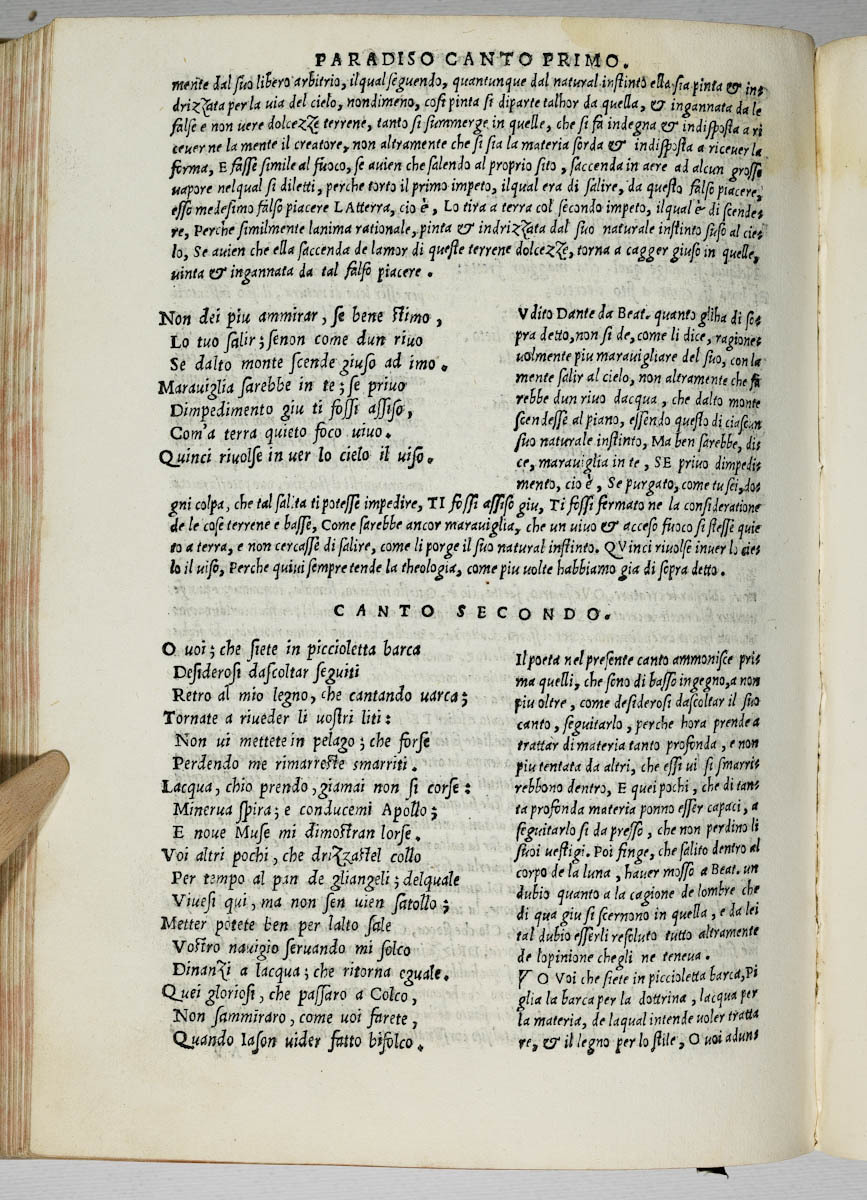 PARADISO CANTO PRIMO.
mente dal suo libero arbitrio, ilqual seguendo, quantunque dal natural instinto ella sia pinta & in-
drizzata per la uia del cielo, nondimeno, cosi pinta si diparte talhor da quella, & ingannata da le
false e non uere dolcezze terrene, tanto si summerge in quelle, che si fa indegna & indisposta a ri
ceuer ne la mente il creatore, non altramente che si sia la materia sorda & indisposta a riceuer la
forma, E fasse simile al fuoco, se auien che salendo al proprio sito, saccenda in aere ad alcun grosso
uapore nelqual si diletti, perche torto il primo impeto, ilqual era di salire, da questo falso piacere,
esso medesimo falso piacere LAtterra, cio è, Lo tira a terra col secondo impeto, ilqual è di scende-
re, Perche similmente lanima rationale, pinta & indrizzata dal suo naturale instinto suso al cie-
lo, Se auien che ella saccenda de lamor di queste terrene dolcezze, torna a cagger giuso in quelle,
uinta & ingannata da tal falso piacere.
Non dei piu ammirar, se bene stimo,
Lo tuo salir; senon come dun riuo
Se dalto monte scende giuso ad imo.
Marauiglia sarebbe in te; se priuo
Dimpedimento giu ti fossi assiso,
Com'a terra quieto foco uiuo.
Quinci riuolse in uer lo cielo il uiso.
Vdito Dante da Beat. quanto gliha di so-
pra detto, non si de, come li dice, ragione-
uolmente piu marauigliare del suo, con la
mente salir al cielo, non altramente che fa
rebbe dun riuo dacqua, che dalto monte
scendesse al piano, essendo questo di ciascun
suo naturale instinto, Ma ben sarebbe, di-
ce, marauiglia in te, SE priuo dimpedi-
mento, cio è, Se purgato, come tu sei, do-
gni colpa, che tal salita ti potesse impedire, TI fossi assiso giu, Ti fossi fermato ne la consideratione
de le cose terrene e basse, Come sarebbe ancor marauiglia, che un uiuo & acceso fuoco si stesse quie
to a terra, e non cercasse di salire, come li porge il suo natural instinto. QVinci riuolse inuer lo cie-
lo il uiso, Perche quiui sempre tende la theologia, come piu uolte habbiamo gia di sopra detto.
CANTO SECONDO.
O uoi; che siete in piccioletta barca
Desiderosi dascoltar seguiti
Retro al mio legno, che cantando uarca;
Tornate a riueder li uostri liti:
Non ui mettete in pelago; che forse
Perdendo me rimarreste smarriti.
Lacqua, chio prendo, giamai non si corse:
Minerua spira; e conducemi Apollo;
E noue Muse mi dimostran lorse.
Voi altri pochi, che drizzastel collo
Per tempo al pan de gliangeli; delquale
Viuesi qui, ma non sen uien satollo;
Metter potete ben per lalto sale
Vostro nauigio seruando mi solco
Dinanzi a lacqua; che ritorna eguale.
Quei gloriosi, che passaro a Colco,
Non sammiraro, come uoi farete,
Quando Iason uider fatto bifolco.
Il poeta nel presente canto ammonisce pri-
ma quelli, che sono di basso ingegno, a non
piu oltre, come desiderosi dascoltar il suo
canto, seguitarlo, perche hora prende a
trattar di materia tanto profonda, e non
piu tentata da altri, che essi ui si smarri-
rebbono dentro, E quei pochi, che di tan-
ta profonda materia ponno esser capaci, a
seguitarlo si da presso, che non perdino li
suoi uestigi. Poi finge, che salito dentro al
corpo de la luna, hauer mosso a Beat. un
dubio quanto a la cagione de lombre che
di qua giu si scernono in quella, e da lei
tal dubio esserli resoluto tutto altramente
de lopinione chegli ne teneua.
O Voi che siete in piccioletta barca, Pi
glia la barca per la dottrina, lacqua per
la materia, de laqual intende uoler tratta
re, & il legno per lo stile, O uoi adun-